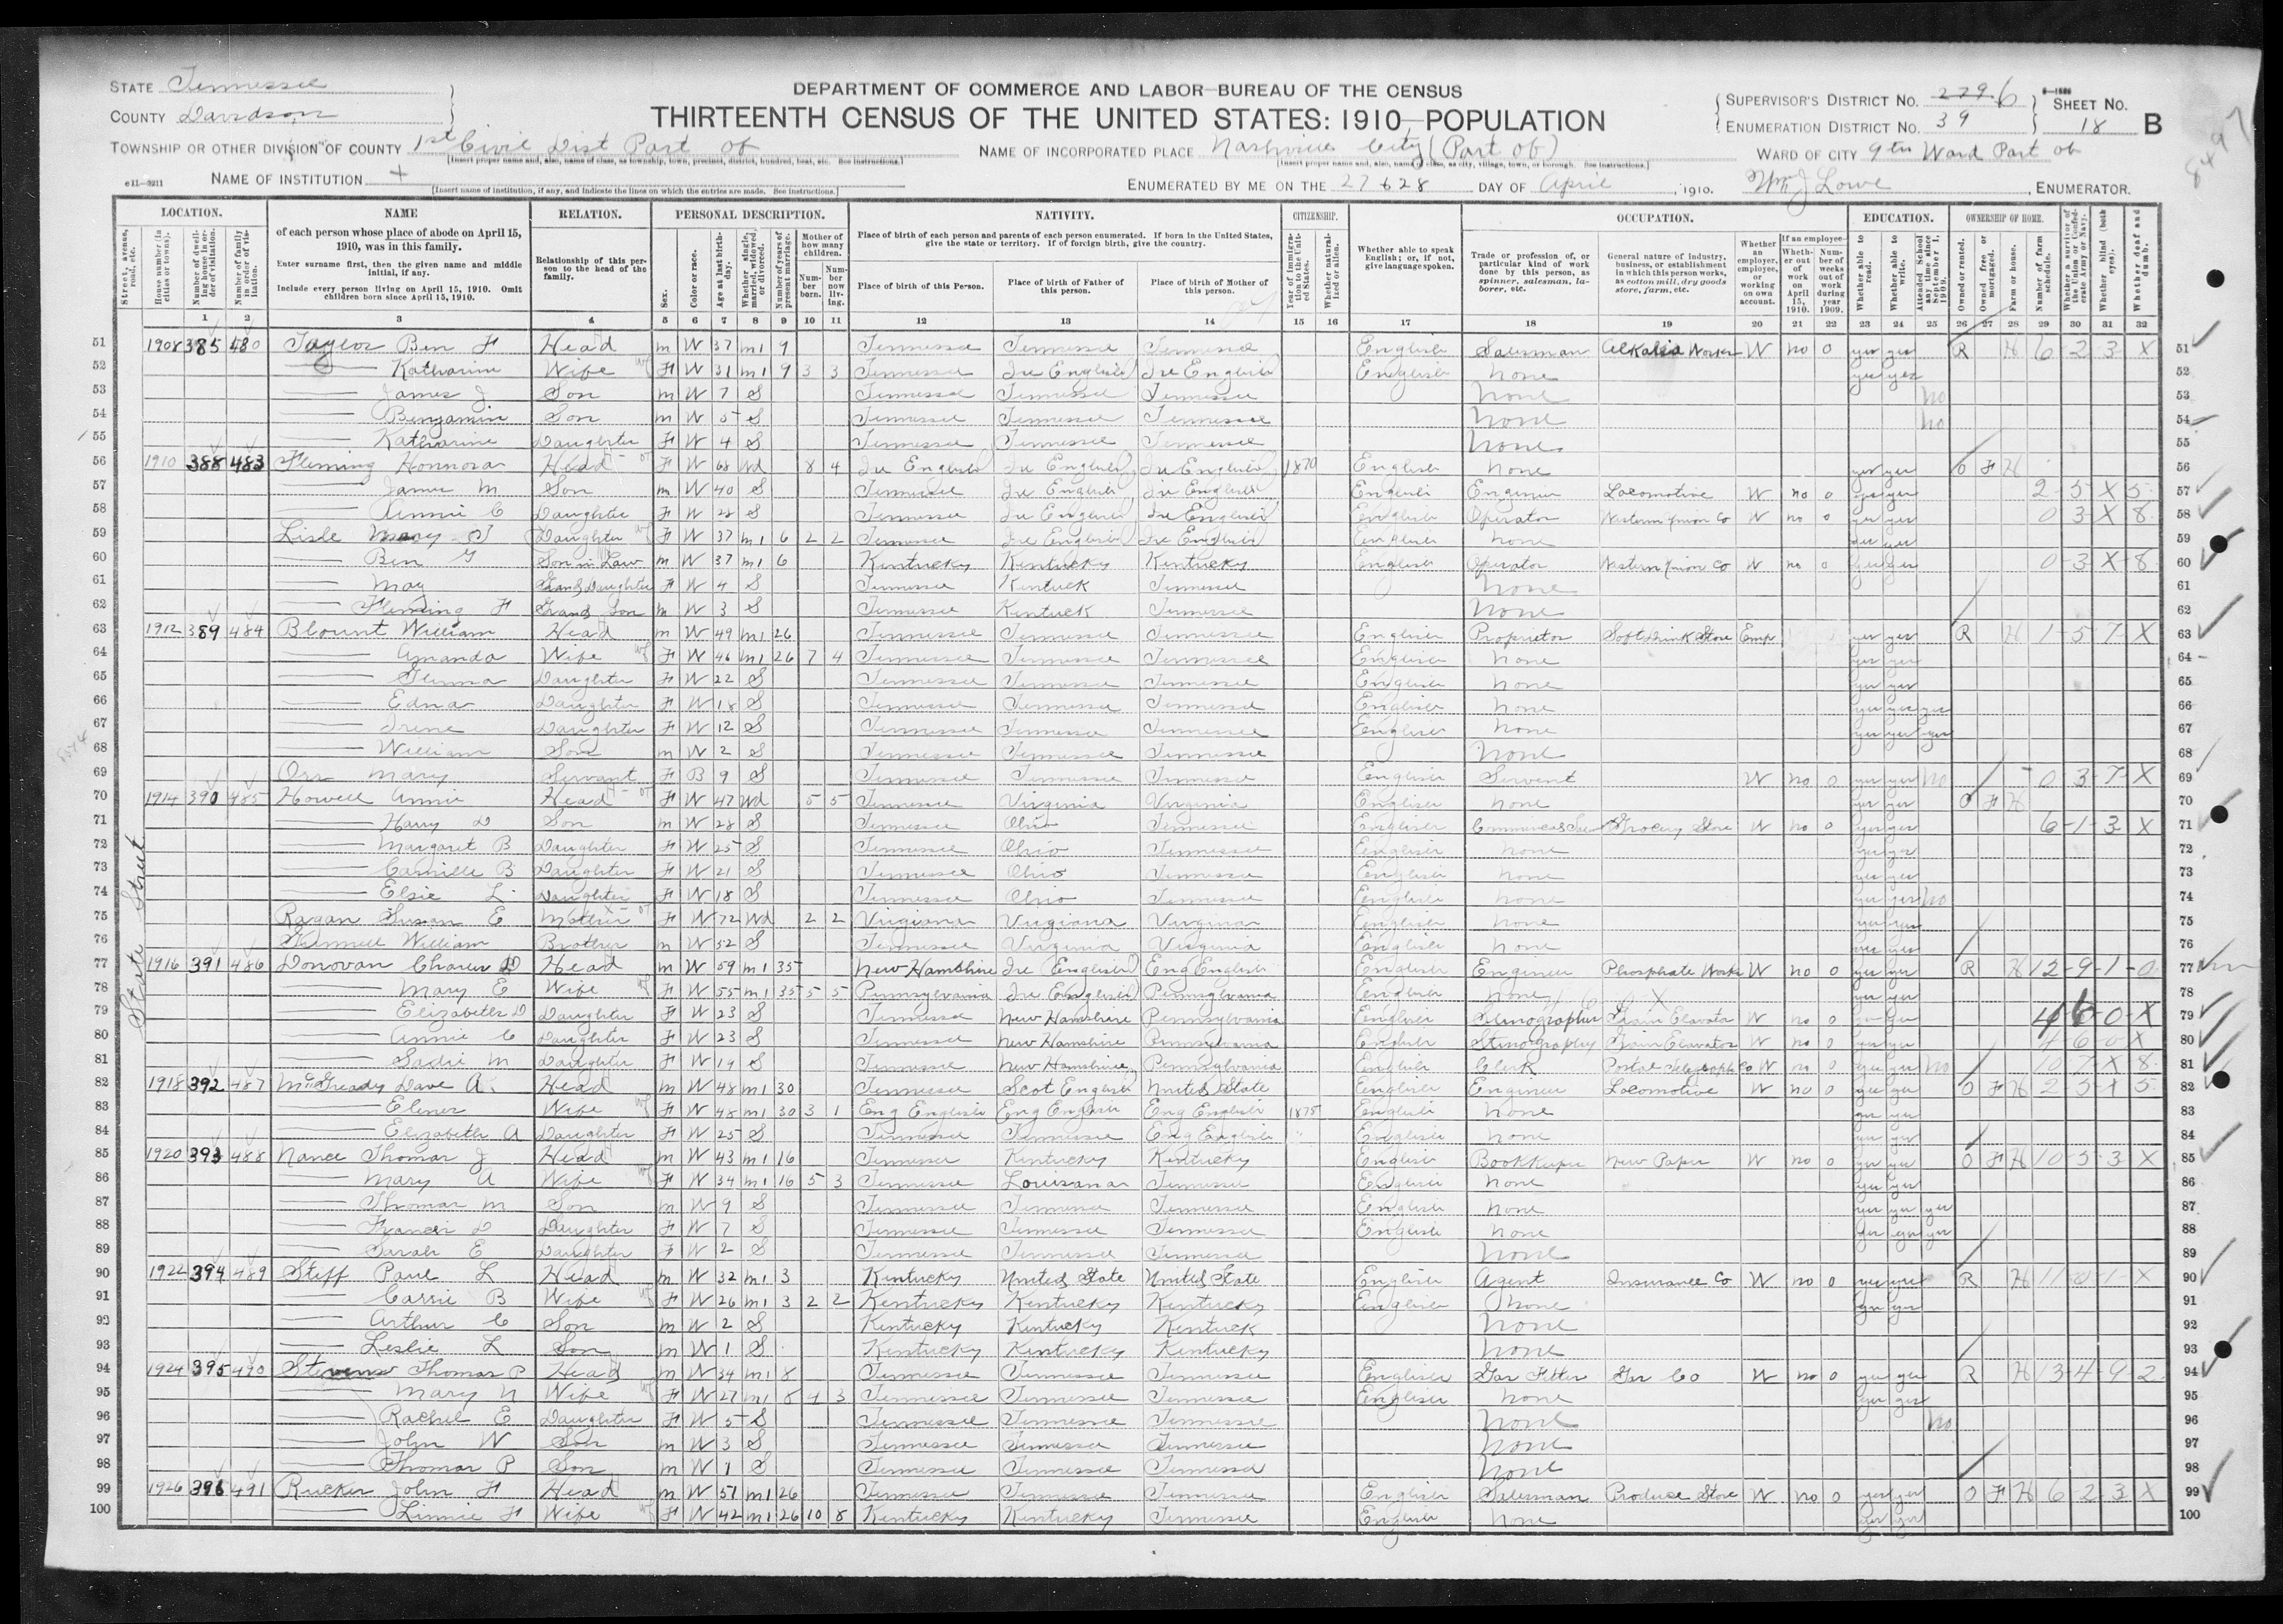 STATE Tennessee
COUNTY Davidson
DEPARTMENT OF COMMERCE AND LABOR—BUREAU OF THE CENSUS
THIRTEENTH CENSUS OF THE UNITED STATES: 1910—POPULATION
SUPERVISOR'S DISTRICT NO. 6
ENUMERATION DISTRICT NO. 39
SHEET NO. 18 B
TOWNSHIP OR OTHER DIVISION OF COUNTY 1st Civil Dist Part of
[Insert proper name and, also, name of class, as township, town, precinct, district, hundred, beat, etc. See instructions.]
NAME OF INCORPORATED PLACE Nashville City (Part of)
[Insert proper name and, also, name of class, as city, village, town, or borough. See instructions.]
WARD OF CITY 9th Ward Part of
NAME OF INSTITUTION
[Insert name of institution, if any, and indicate the lines on which the entries are made. See instructions.]
ENUMERATED BY ME ON THE 27 & 28 DAY OF April, 1910. Wm J Lowe, ENUMERATOR.
LOCATION. NAME RELATION. PERSONAL DESCRIPTION. NATIVITY. CITIZENSHIP. OCCUPATION. EDUCATION. OWNERSHIP OF HOME.
State Street
51 1908 385 480 Taylor Ben F Head m W 37 m1 9 Tennessee Tennessee Tennessee English Salesman W no 0 yes yes R H 6-2-3-X 51
52 Katharine Wife F W 31 m1 9 3 3 Tennessee Ire English Ire English English None yes yes 52
53 James J Son m W 7 S Tennessee Tennessee Tennessee None no 53
54 Benjamin Son m W 5 S Tennessee Tennessee Tennessee None no 54
55 Katharine Daughter F W 4 S Tennessee Tennessee Tennessee None 55
56 1910 388 483 Fleming Honnora Head F W 68 Wd 8 4 Ire English Ire English Ire English 1870 English None yes yes O F H 56
57 James M Son m W 40 S Tennessee Ire English Ire English English Engineer Locomotive W no 0 yes yes 2-5-X-5 57
58 Annie C Daughter F W 28 S Tennessee Ire English Ire English English Operator Western Union Co W no 0 yes yes 0 3-X-8 58
59 Lisle Mary Daughter F W 37 m1 6 2 2 Tennessee Ire English Ire English English None yes yes 59
60 Ben G Son in Law m W 37 m1 6 Kentucky Kentucky Kentucky English Operator Western Union Co W no 0 yes yes 0-3-X-8 60
61 May Grand Daughter F W 4 S Tennessee Kentuck Tennessee None 61
62 Fleming F Grand Son m W 3 S Tennessee Kentuck Tennessee None 62
63 1912 389 484 Blount William Head m W 49 m1 26 Tennessee Tennessee Tennessee English Proprietor Soft Drink Store Emp yes yes R H 1-5-7-X 63
64 Amanda Wife F W 46 m1 26 7 4 Tennessee Tennessee Tennessee English None yes yes 64
65 Daughter F W 22 S Tennessee Tennessee Tennessee English None yes yes 65
66 Edna Daughter F W 18 S Tennessee Tennessee Tennessee English None yes yes yes 66
67 Irene Daughter F W 12 S Tennessee Tennessee Tennessee English None yes yes yes 67
68 William Son m W 2 S Tennessee Tennessee Tennessee None 68
69 Orr Mary Servant F B 9 S Tennessee Tennessee Tennessee English Servent W no 0 yes yes no 0 3-7-X 69
70 1914 390 485 Howell Annie Head F W 47 Wd 5 5 Tennessee Virginia Virginia English None yes yes O F H 70
71 Harry D Son m W 28 S Tennessee Ohio Tennessee English Grocery Store W no 0 yes yes 6-1-3 X 71
72 Margaret B Daughter F W 25 S Tennessee Ohio Tennessee English None yes yes 72
73 Camille B Daughter F W 21 S Tennessee Ohio Tennessee English None yes yes 73
74 Elsie L Daughter F W 18 S Tennessee Ohio Tennessee English None yes yes no 74
75 Ragan Susan E Mother F W 72 Wd 2 2 Virginia Virginia Virginia English None yes yes 75
76 William Brother m W 52 S Tennessee Virginia Virginia English None yes yes 76
77 1916 391 486 Donovan Charles D Head m W 59 m1 35 New Hamshire Ire English Eng English English Engineer Phosphate Works W no 0 yes yes R H 12-9-1-0 77
78 Mary E Wife F W 55 m1 35 5 5 Pennsylvania Ire English Pennsylvania English None yes yes 78
79 Elizabeth D Daughter F W 23 S Tennessee New Hamshire Pennsylvania English Stenographer Grain Elavator W no 0 yes yes 4 6-0-X 79
80 Annie C Daughter F W 23 S Tennessee New Hamshire Pennsylvania English Stenography Grain Elavator W no 0 yes yes 4-6-0-X 80
81 Sadie M Daughter F W 19 S Tennessee New Hamshire Pennsylvania English Clerk Postal Telegraph Co W no 0 yes yes no 10 7-X 8 81
82 1918 392 487 McGready Dave A. Head m W 48 m1 30 Tennessee Scot English United State English Engineer Locomotive W no 0 yes yes O F H 2 5-X 5 82
83 Elener Wife F W 48 m1 30 3 1 Eng English Eng English Eng English 1875 English None yes yes 83
84 Elizabeth A Daughter F W 25 S Tennessee Tennessee Eng English English None yes yes 84
85 1920 393 488 Nance Thomas J Head m W 43 m1 16 Tennessee Kentucky Kentucky English Bookkeeper News Paper W no 0 yes yes O F H 10-5-3 X 85
86 Mary A Wife F W 34 m1 16 5 3 Tennessee Louisana Tennessee English None yes yes 86
87 Thomas M Son m W 9 S Tennessee Tennessee Tennessee English None yes yes yes 87
88 Francis D Daughter F W 7 S Tennessee Tennessee Tennessee English None yes yes yes 88
89 Sarah E Daughter F W 2 S Tennessee Tennessee Tennessee None 89
90 1922 394 489 Steff Paul L Head m W 32 m1 3 Kentucky United State United State English Agent Insurance Co W no 0 yes yes R H 11-0-1-X 90
91 Carrie B Wife F W 26 m1 3 2 2 Kentucky Kentucky Kentucky English None yes yes 91
92 Arthur C Son m W 2 S Kentucky Kentucky Kentuck None 92
93 Leslie L Son m W 1 S Kentucky Kentucky Kentucky None 93
94 1924 395 490 Stevens Thomas P Head m W 34 m1 8 Tennessee Tennessee Tennessee English Gas Fitter Gas Co W no 0 yes yes R H 13-4-9-2 94
95 Mary N Wife F W 27 m1 8 4 3 Tennessee Tennessee Tennessee English None yes yes 95
96 Rachel E Daughter F W 5 S Tennessee Tennessee Tennessee None no 96
97 John W Son m W 3 S Tennessee Tennessee Tennessee None 97
98 Thomas P Son m W 1 S Tennessee Tennessee Tennessee None 98
99 1926 396 491 Rucker John F Head m W 57 m1 26 Tennessee Tennessee Tennessee English Salesman Produce Store W no 0 yes yes O F H 6-2-3-X 99
100 Linnie F Wife F W 42 m1 26 10 8 Kentucky Kentucky Tennessee English None yes yes 100